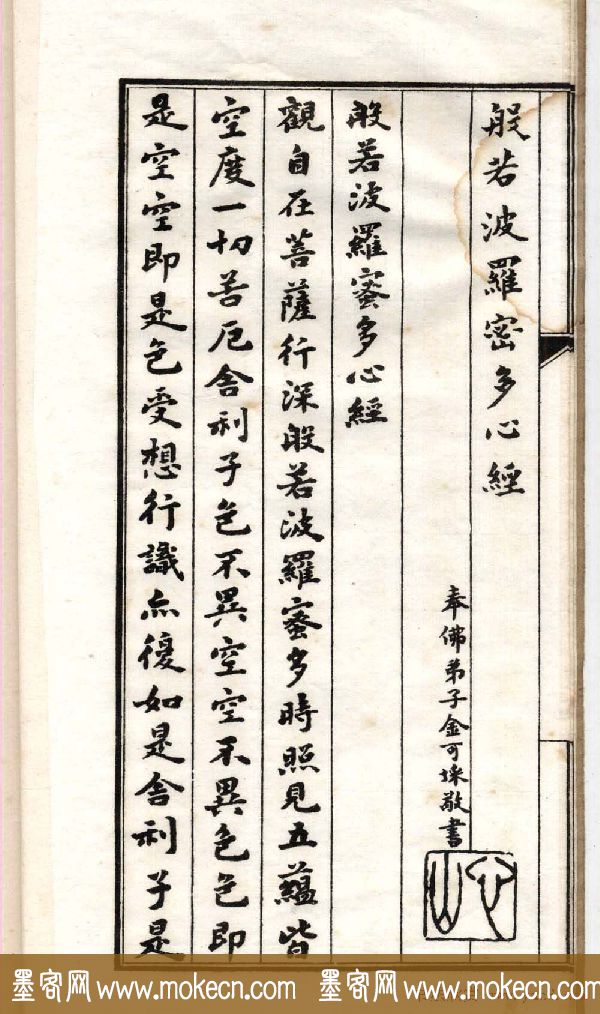 般若波羅密多心經
奉佛弟子金可埰敬書
般若波羅蜜多心經
觀自在菩薩行深般若波羅蜜多時照見五蘊皆
空度一切苦厄舍利子色不異空空不異色色即
是空空即是色受想行識亦復如是舍利子是
墨客网 www.mokecn.com 墨客网 www.mokecn.com